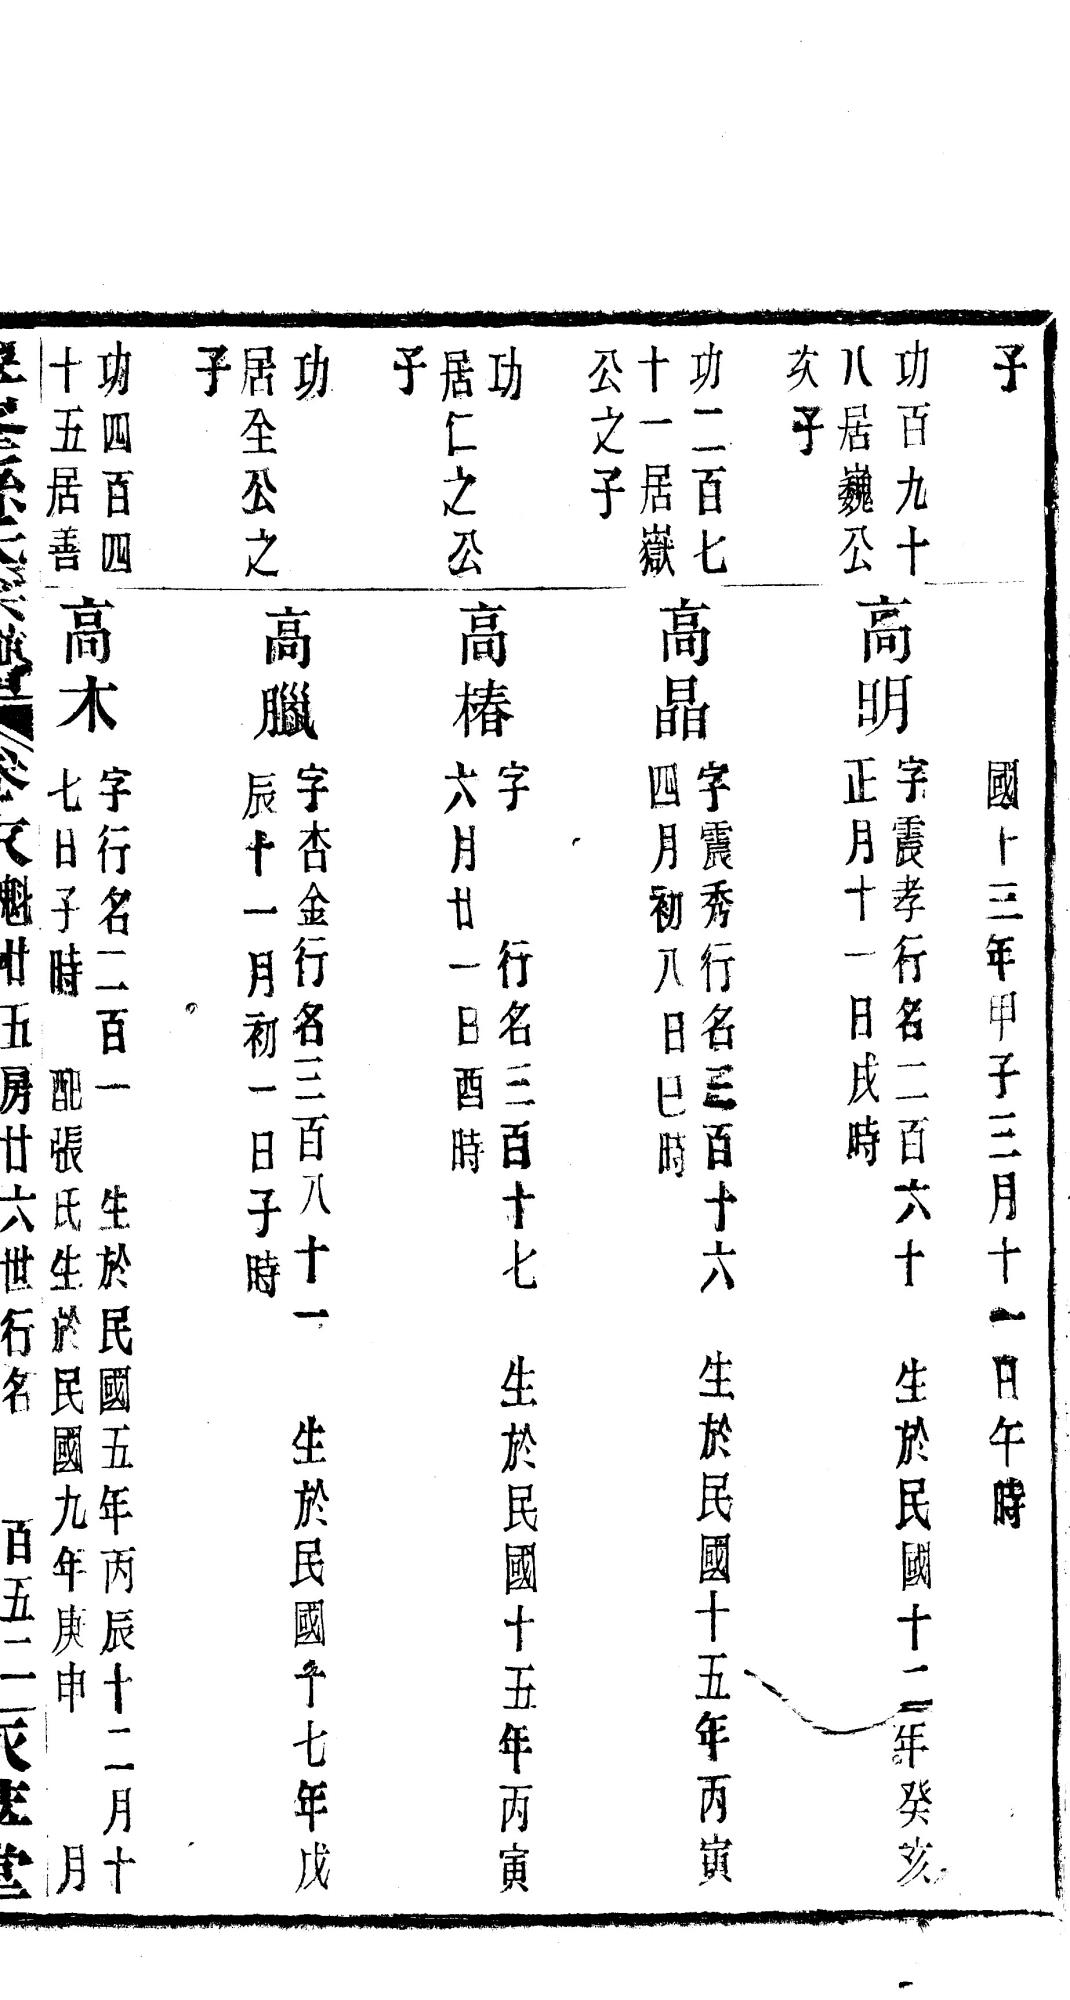 子
國十三年甲子三月十一日午時
功百九十
八居巍公
次子
高明
字震孝行名二百六十 生於民國十二年癸亥
正月十一日戌時
功二百七
十一居嶽
公之子
高晶
字震秀行名三百十六 生於民國十五年丙寅
四月初八日巳時
功
居仁之公
子
高椿
字 行名三百十七 生於民國十五年丙寅
六月廿一日酉時
功
居全公之
子
高臘
字杏金行名三百八十一 生於民國十七年戊
辰十一月初一日子時
功四百四
十五居善
高木
字行名二百一 生於民國五年丙辰十二月十
七日子時 配張氏生於民國九年庚申 月
卷友魁廿五房廿六世行名 百五二